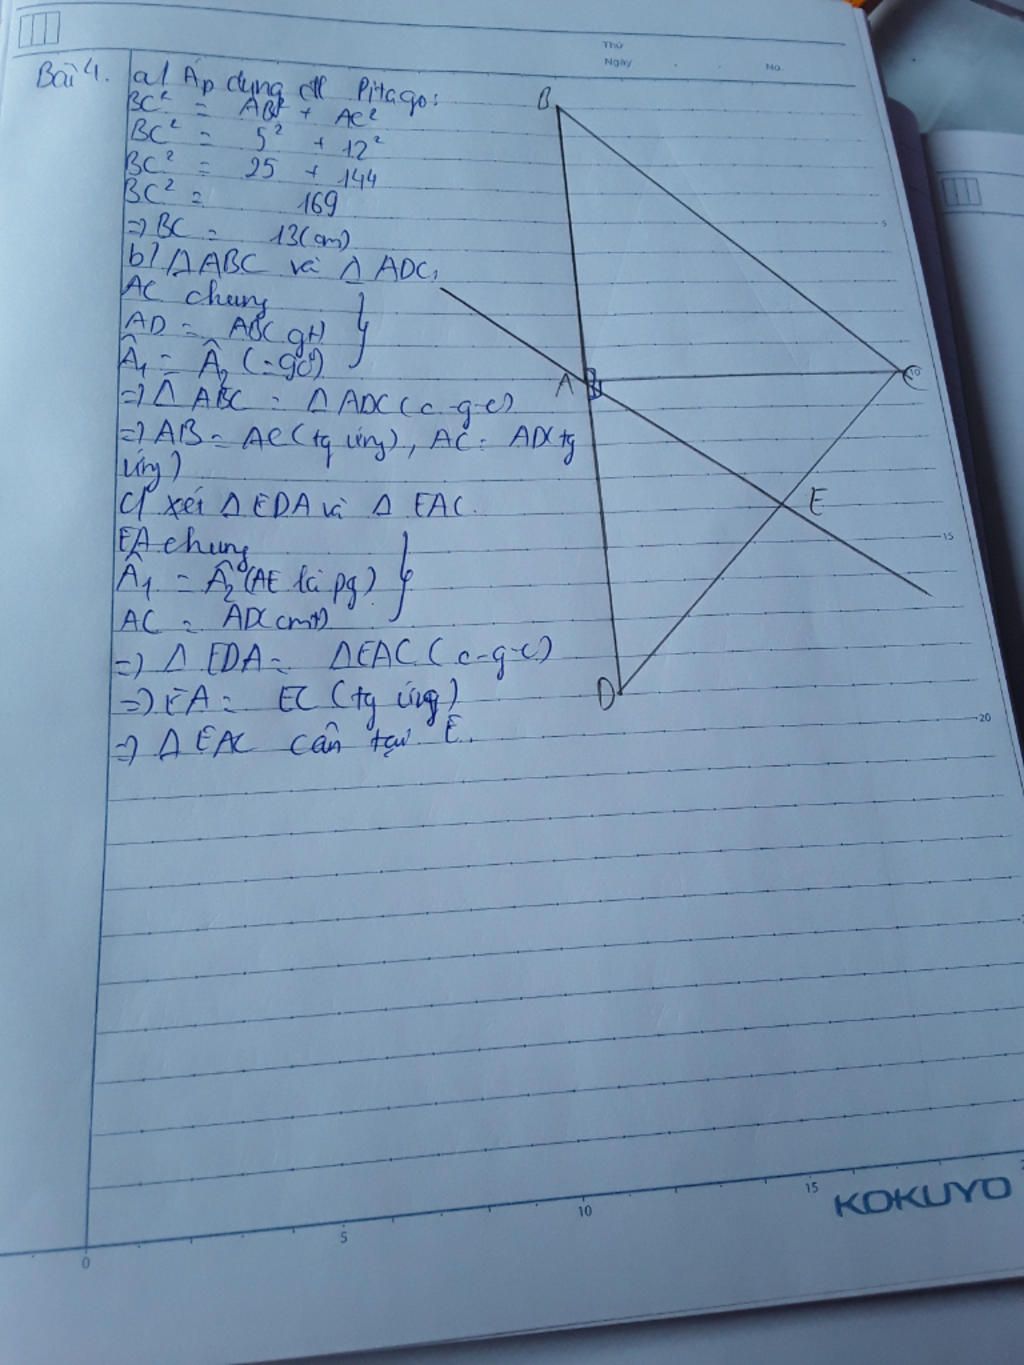 Thứ
Ngày
No.
Bài 4. a/ Áp dụng đl Pitago:
BC² = AB² + AC²
BC² = 5² + 12²
BC² = 25 + 144
BC² = 169
=> BC = 13(cm)
b/ △ABC và △ADC,
AC chung
AD = AB(gt)
Â₁ = Â₂ (=90°)
=> △ABC = △ADC(c-g-c)
=> AB = AC(tg ứng), AC = AD(tg
ứng)
c/ xét △EDA và △EAC.
EA chung
Â₁ = Â₂ (AE là pg)
AC = AD(cmt)
=> △EDA = △EAC(c-g-c)
=> EA = EC (tg ứng)
=> △EAC cân tại E.
B
A
C
E
D
5
10
15
20
0
5
10
15
KOKUYO